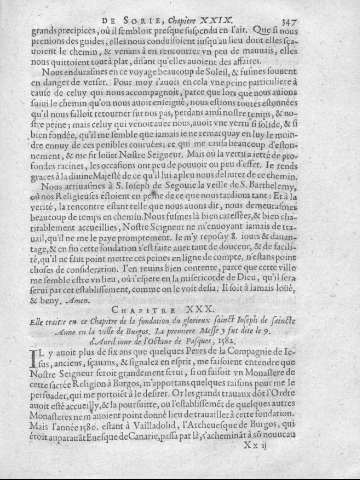 DE SORIE, Chapitre XXIX. 347
grands precipices, où il sembloit presque suspendu en l'air. Que si nous
prenions des guides, elles nous conduisoient jusqu'au lieu dont elles sça-
uoient le chemin, & venans à en rencontrer vn peu de mauuais, elles
nous quittoient tout à plat, disant qu'elles auoient des affaires.
Nous endurasmes en ce voyage beaucoup de Soleil, & fusmes souuent
en danger de verser. Pour moy j'auois en cela vne peine particuliere à
cause de celuy qui nous accompagnoit, parce que lors que nous auions
suiui le chemin qu'on nous auoit enseigné, nous estions toutes estonnées
qu'il nous falloit retourner sur nos pas, perdans ainsi nostre temps, & no-
stre peine; mais celuy qui venoit auec nous, auoit vne vertu si solide, & si
bien fondée, qu'il me semble que iamais ie ne remarquay en luy le moin-
dre ennuy de ces penibles couruées; ce qui me causa beaucoup d'eston-
nement, & me fit loüer Nostre Seigneur. Mais où la vertu a ietté de pro-
fondes racines, les occasions ont peu de pouuoir ou peu d'effet. Ie rends
graces à la diuine Majesté de ce qu'il luy a pleu nous deliurer de ce chemin.
Nous arriuasmes à S. Ioseph de Segouie la veille de S. Barthelemy,
où nos Religieuses estoient en peine de ce que nous tardions tant: Et à la
verité, la rencontre estant telle que nous auons dit, nous demeurasmes
beaucoup de temps en chemin. Nous fusmes là bien caressées, & bien cha-
ritablement accueillies, Nostre Seigneur ne m'enuoyant iamais de tra-
uail, qu'il ne me le paye promptement. Ie m'y reposay 8. iours & dauan-
tage, & en fin cette fondation s'est faite auec tant de douceur, & de facili-
té, qu'il ne faut point mettre ces peines en ligne de compte, n'estans point
choses de consideration. I'en reuins bien contente, parce que cette ville
me semble estre vn lieu, où i'espere en la misericorde de Dieu, qu'il sera
serui par cet establissement, comme on le voit desia. Il soit à iamais loüé,
& beny. Amen.
CHAPITRE XXX.
Elle traitte en ce Chapitre de la fondation du glorieux sainct Ioseph de saincte
Anne en la ville de Burgos. La premiere Messe y fut dite le 9.
d'Auril iour de l'Octaue de Pasques, 1582.
IL y auoit plus de six ans que quelques Peres de la Compagnie de Ie-
sus, anciens, sçauans, & signalez en esprit, me faisoient entendre que
Nostre Seigneur seroit grandement serui, si on faisoit vn Monastere de
cette sacrée Religion à Burgos, m'apportans quelques raisons pour me le
persuader, qui me portoient à le desirer. Or les grands trauaux dont l'Ordre
auoit esté accueilly, & la poursuite, ou l'establissement de quelques autres
Monasteres ne m'auoient point donné lieu de trauailler à cette fondation.
Mais l'année 1580. estant à Vailladolid, l'Archeuesque de Burgos, qui
estoit auparauant Euesque de Canarie, passa par là, s'acheminãt à sõ nouueau
Xx ij